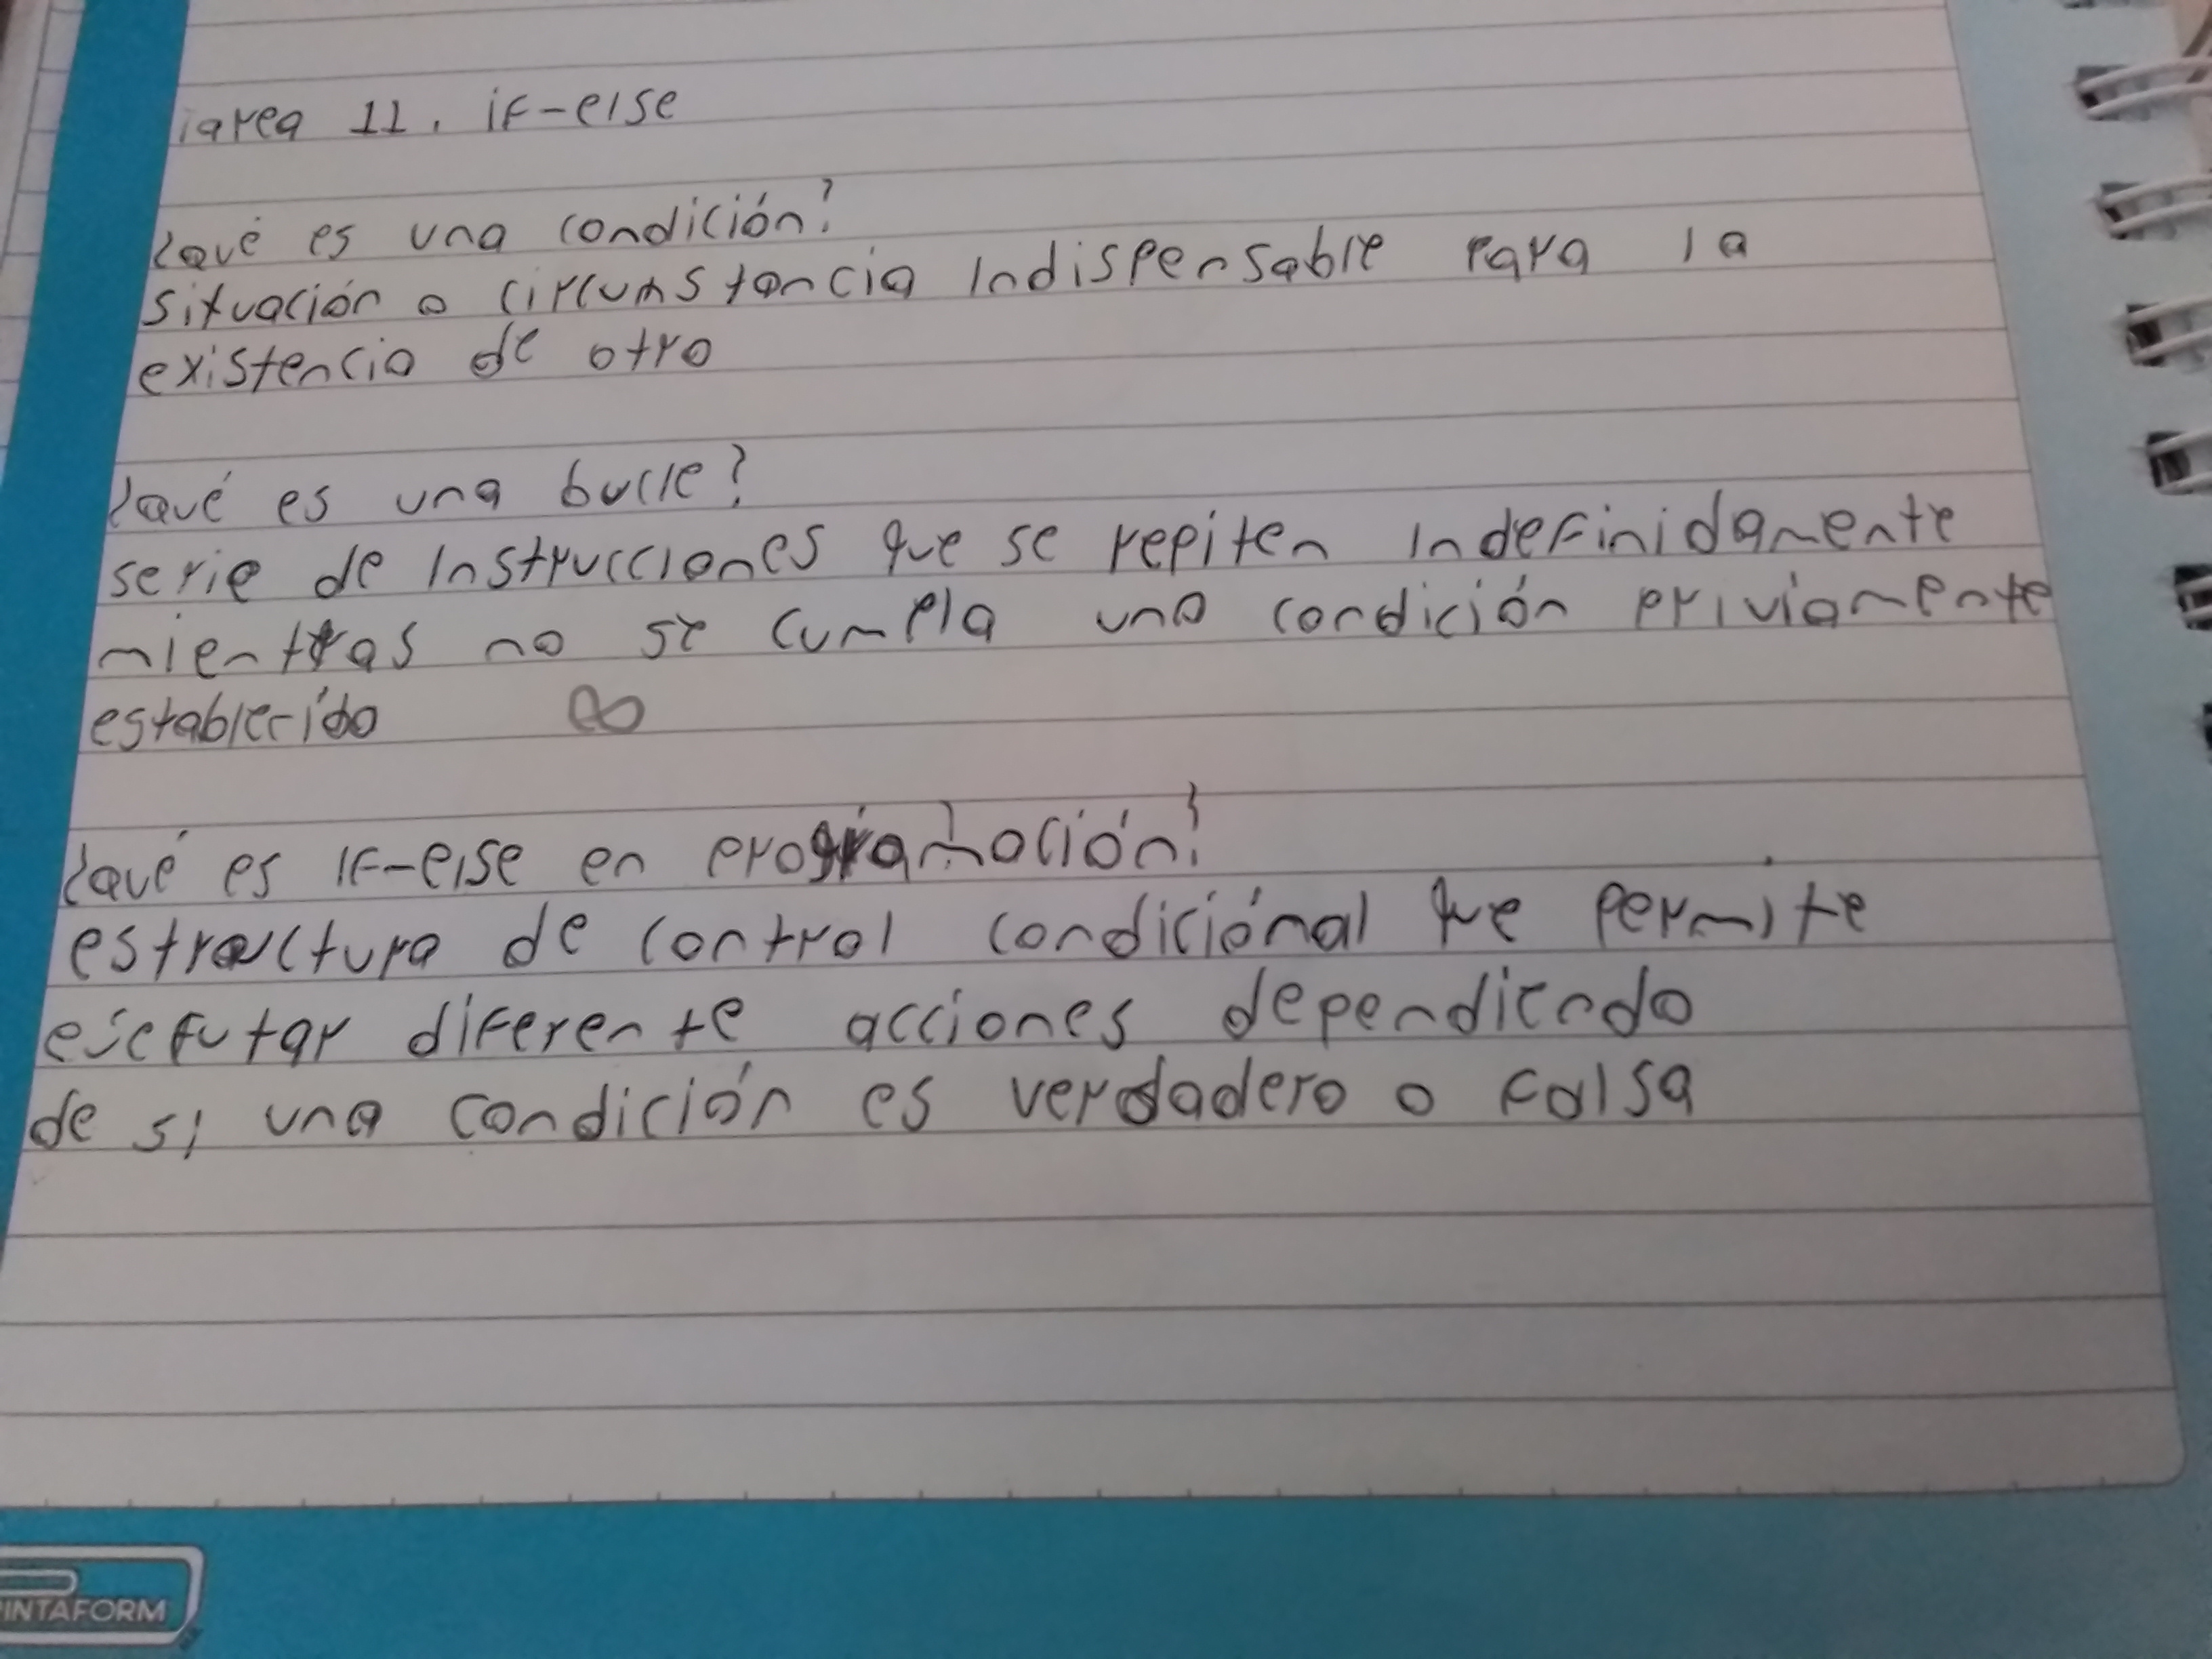 Tarea 11. if-else
¿Qué es una condición?
Situación o circunstancia Indispensable para la
existencia de otro
¿Qué es una bucle?
serie de Instrucciones que se repiten Indefinidamente
mientras no se cumpla una condición priviamente
establecido ∞
¿Qué es If-else en programación?
estructura de control condiciónal que permite
ejecutar diferente acciones dependiendo
de si una condición es verdadero o falsa
PINTAFORM